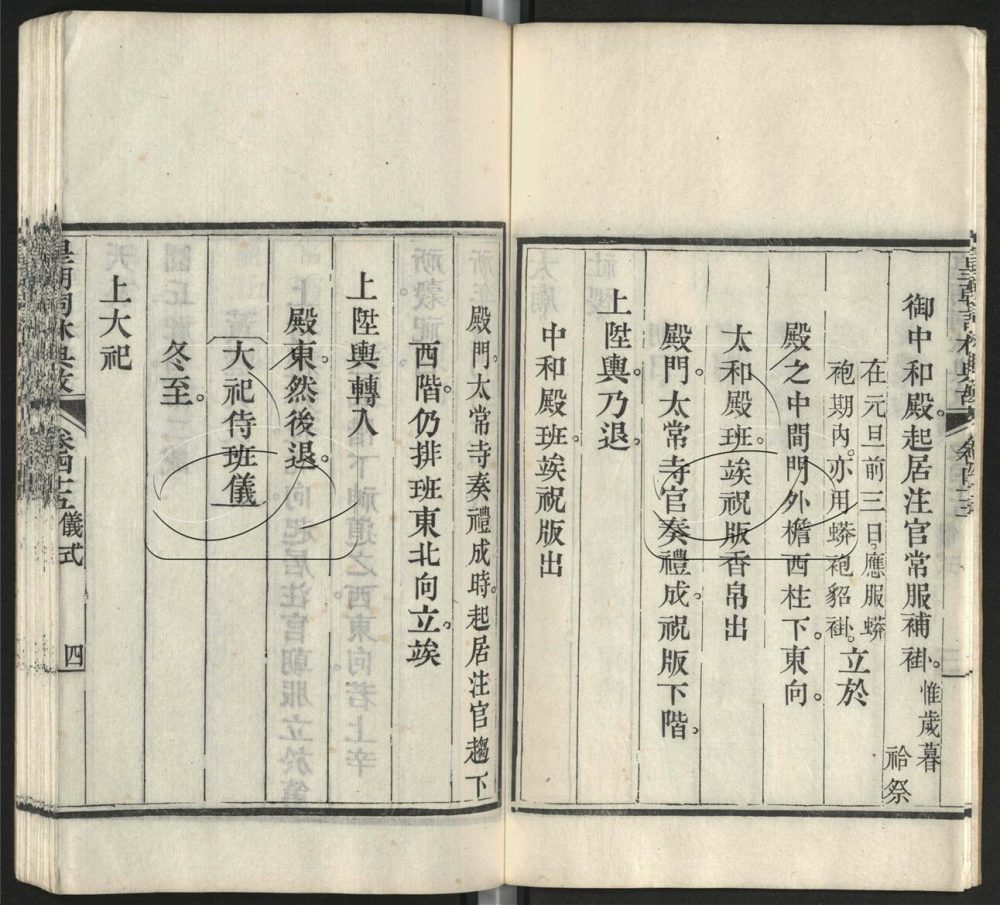 御中和殿。起居注官常服補褂。惟歲暮
祫祭
在元旦前三日。應服蟒
袍期內。亦用蟒袍貂褂。立於
殿之中間門外檐西柱下。東向。
太和殿班。竢祝版香帛出
殿門。太常寺官奏禮成。祝版下階。
上陞輿。乃退。
中和殿班。竢祝版出
殿門。太常寺奏禮成時。起居注官趨下
西階。仍排班東北向立。竢
上陞輿轉入
殿東。然後退。
大祀侍班儀
冬至。
上大祀
皇朝詞林典故 卷四十五 儀式 四